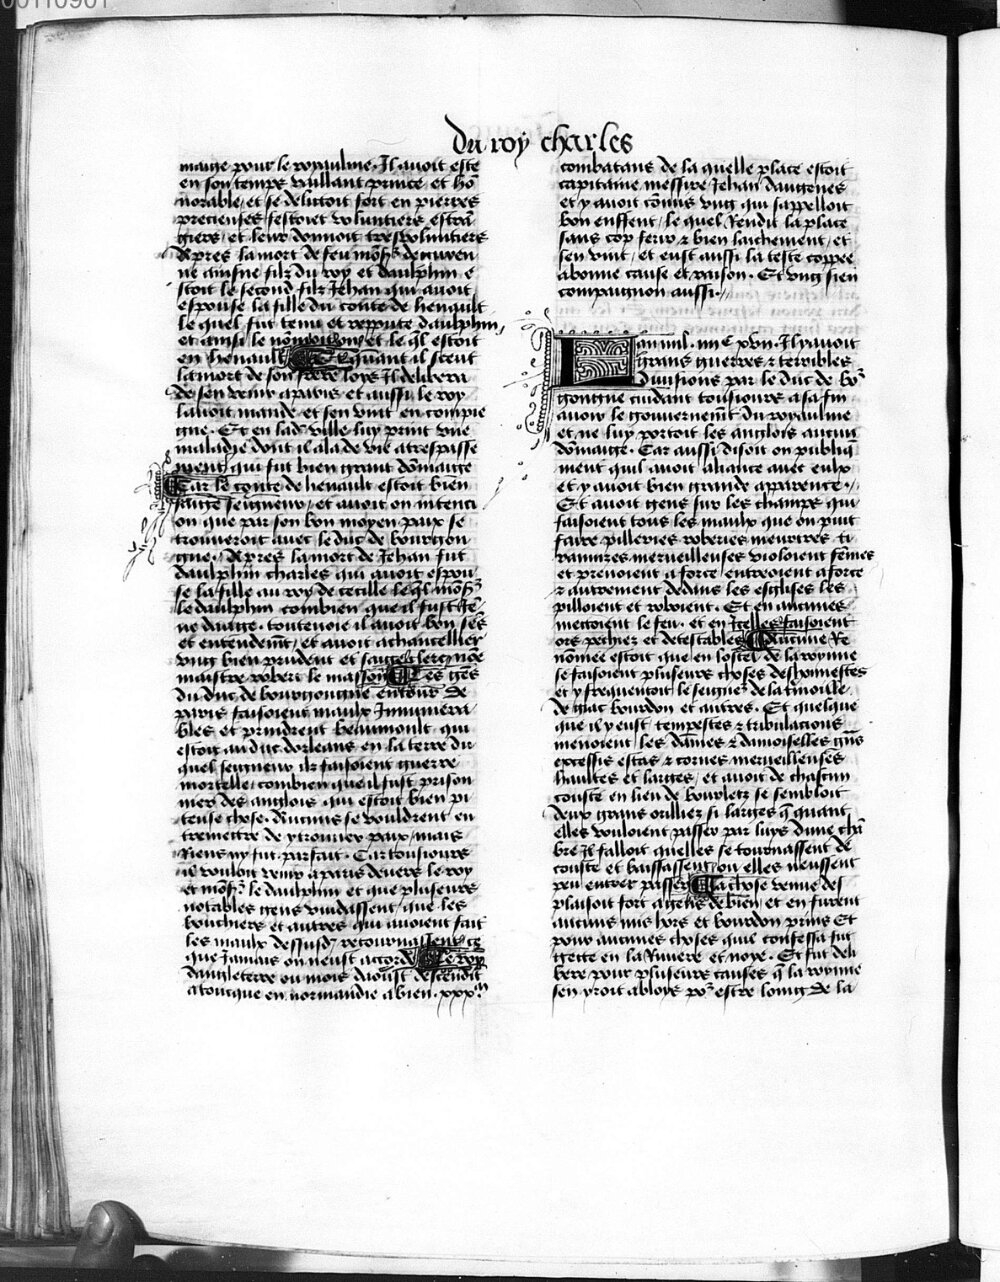 00110901
du roy charles
maige pour le royaulme. Il avoit este
en son temps vaillant prince et ho
norable, et se delictoit fort en pierres
precieuses festoiet voluntiers estra
giers et leur donnoit tresvoluntiers
Apres la mort de feu mons de guyen
ne ainsne filz du roy et daulphin e
stoit le second filz Jehan qui avoit
espouse la fille du conte de henault
le quel fut tenu et reppute daulphin
et ainsi le nommoit on et le ql estoit
en henault Et quant il sceut
la mort de son frere loys Il delibera
de sen venir a paris et aussi le roy
lavoit mande et sen vint en compie
gne. Et en lad ville luy print une
maladie dont il ala de vie a trespasse
ment qui fut bien grant dommaige
Car le conte de henault estoit bien
saige seigneur, et avoit on intenci
on que par son bon moyen paix se
trouveroit avec le duc de bourgon
gne. Apres la mort de Jehan fut
daulphin charles qui avoit espou
se la fille au roy de cecille le ql mons
le daulphin combien que il fust Je
ne daage. toutevoie il avoit bon ses
et entendemt, et avoit a chancellier
ung bien prudent et saige clerc nome
maistre robert le masson Les ges
du duc de bourgongne entour de
paris faisoient maulx Innumera
bles et prindrent beaumont qui
estoit au duc dorleans en la terre du
quel seigneur ilz faisoient guerre
mortelle combien que il fust prison
nier des anglois qui estoit bien pi
teuse chose. Aucuns se vouldrent en
tremettre de y trouver paix, mais
Riens ny fut parfait. Car tousiours
il vouloit venir a paris devers le roy
et mons le daulphin et que plusieurs
notables gens vuidassent, que les
bouchiers et autres qui avoient fait
les maulx dessusd retournassent ce
que Jamais on neust accorde Le roy
dangleterre ou mois daoust descendit
a toucque en normandie a bien. xxx.m
combatans de la quelle place estoit
capitaine messire Jehan dangenes
et y avoit commis ung qui sappelloit
bon enffent, le quel Rendit la place
sans cop ferir & bien laichement, et
sen vint, et eust aussi la teste coppee
a bonne cause et raison. Et ung sien
compaignon aussi.
Lan mil. iiiic xvii. Il y avoit
grans guerres & terribles
Divisions par le duc de bo
gongne cuidant tousiours a sa fin
avoir le gouvernemt du royaulme
et ne luy portoit les anglois aucun
dommaige. Car aussi disoit on publiq
ment quil avoit aliance avec eulx
et y avoit bien grande apparence.
Et avoit gens sur les champs qui
faisoient tous les maulx que on puit
faire pilleries roberies meurtres ti
rannizes merveilleuses violoient femes
et prenoient a force entreoient a force
& autrement dedans les esglises les
pilloient et roboient. Et en aucunes
mectoient le feu. et en Icelles faisoient
ors pechiez et detestables Aucune Re
nommee estoit que en lostel de la royne
se faisoient plusieurs choses deshonnestes
et y frequentoit le seigneur de la trimoille.
de giac bourdon et autres. Et quelque
que il y eust tempestes & tribulacions
menoient les Dames & damoiselles gns
excessis estas & cornes merveilleuses
haultes et larges, et avoit de chascun
couste en lieu de bourletz se sembloit
deux grans oreilliez si larges q quant
elles vouloient passer par luys dune cha
bre Il falloit quelles se tournassent de
couste et baissassent, ou elles neussent
peu entrer passer La chose venue des
plaisoit fort a gens de bien et en furent
aucuns mis hors et bourdon prins Et
pour aucunes choses quil confessa fut
gette en la Riviere et noye. Et fut deli
bere pour plusieurs causes q la royne
sen yroit a bloys po estre loing de la